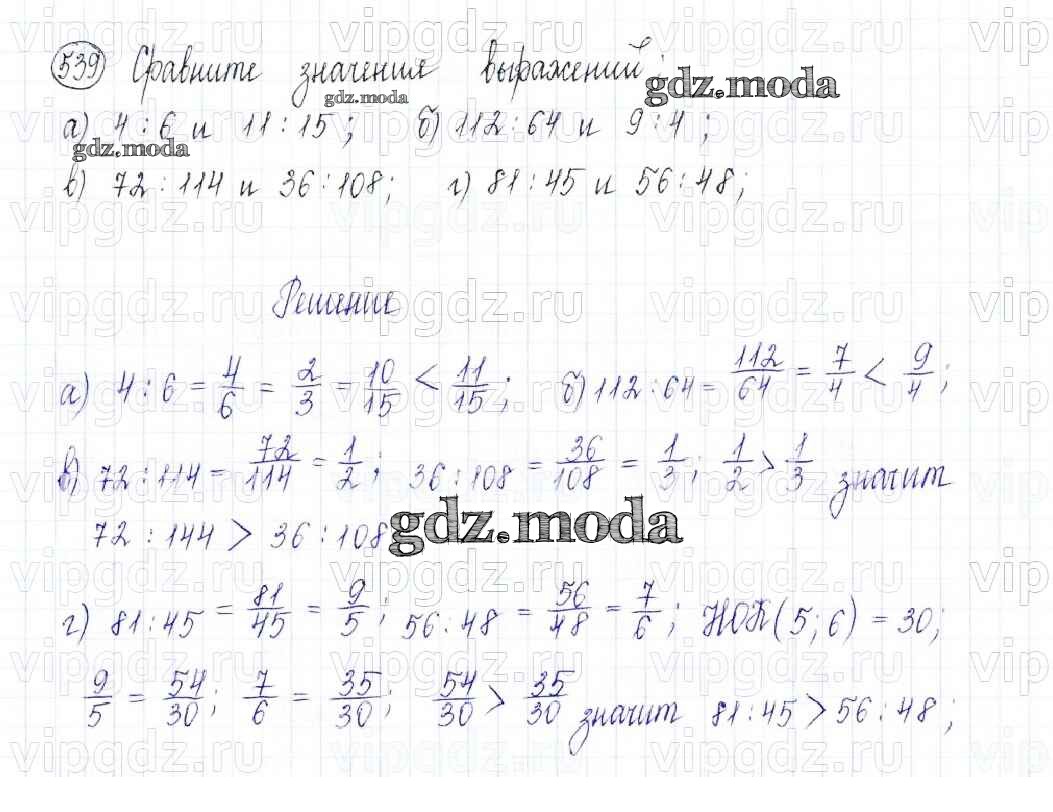 vipgdz.ru vipgdz.ru vipgdz.ru vip
539 Сравните значения выражений:
gdz.moda gdz.moda
а) 4 : 6 и 11 : 15 ; б) 112 : 64 и 9 : 4 ;
gdz.moda
в) 72 : 114 и 36 : 108 ; г) 81 : 45 и 56 : 48 ;
vipgdz.ru vipgdz.ru vipgdz.ru vip
Решение
а) 4 : 6 = 4/6 = 2/3 = 10/15 < 11/15 ; б) 112 : 64 = 112/64 = 7/4 < 9/4 ;
в) 72 : 114 = 72/114 = 1/2 ; 36 : 108 = 36/108 = 1/3 ; 1/2 > 1/3 значит
72 : 144 > 36 : 108
gdz.moda
г) 81 : 45 = 81/45 = 9/5 ; 56 : 48 = 56/48 = 7/6 ; НОК (5; 6) = 30;
9/5 = 54/30 ; 7/6 = 35/30 ; 54/30 > 35/30 значит 81 : 45 > 56 : 48 ;
vipgdz.ru vipgdz.ru vipgdz.ru vip